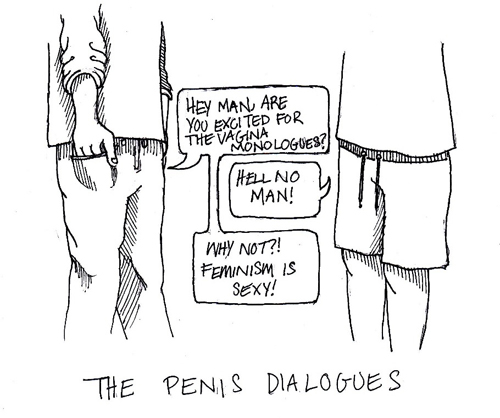 HEY MAN, ARE
YOU EXCITED FOR
THE VAGINA
MONOLOGUES?
HELL NO
MAN!
WHY NOT?!
FEMINISM IS
SEXY!
THE PENIS DIALOGUES